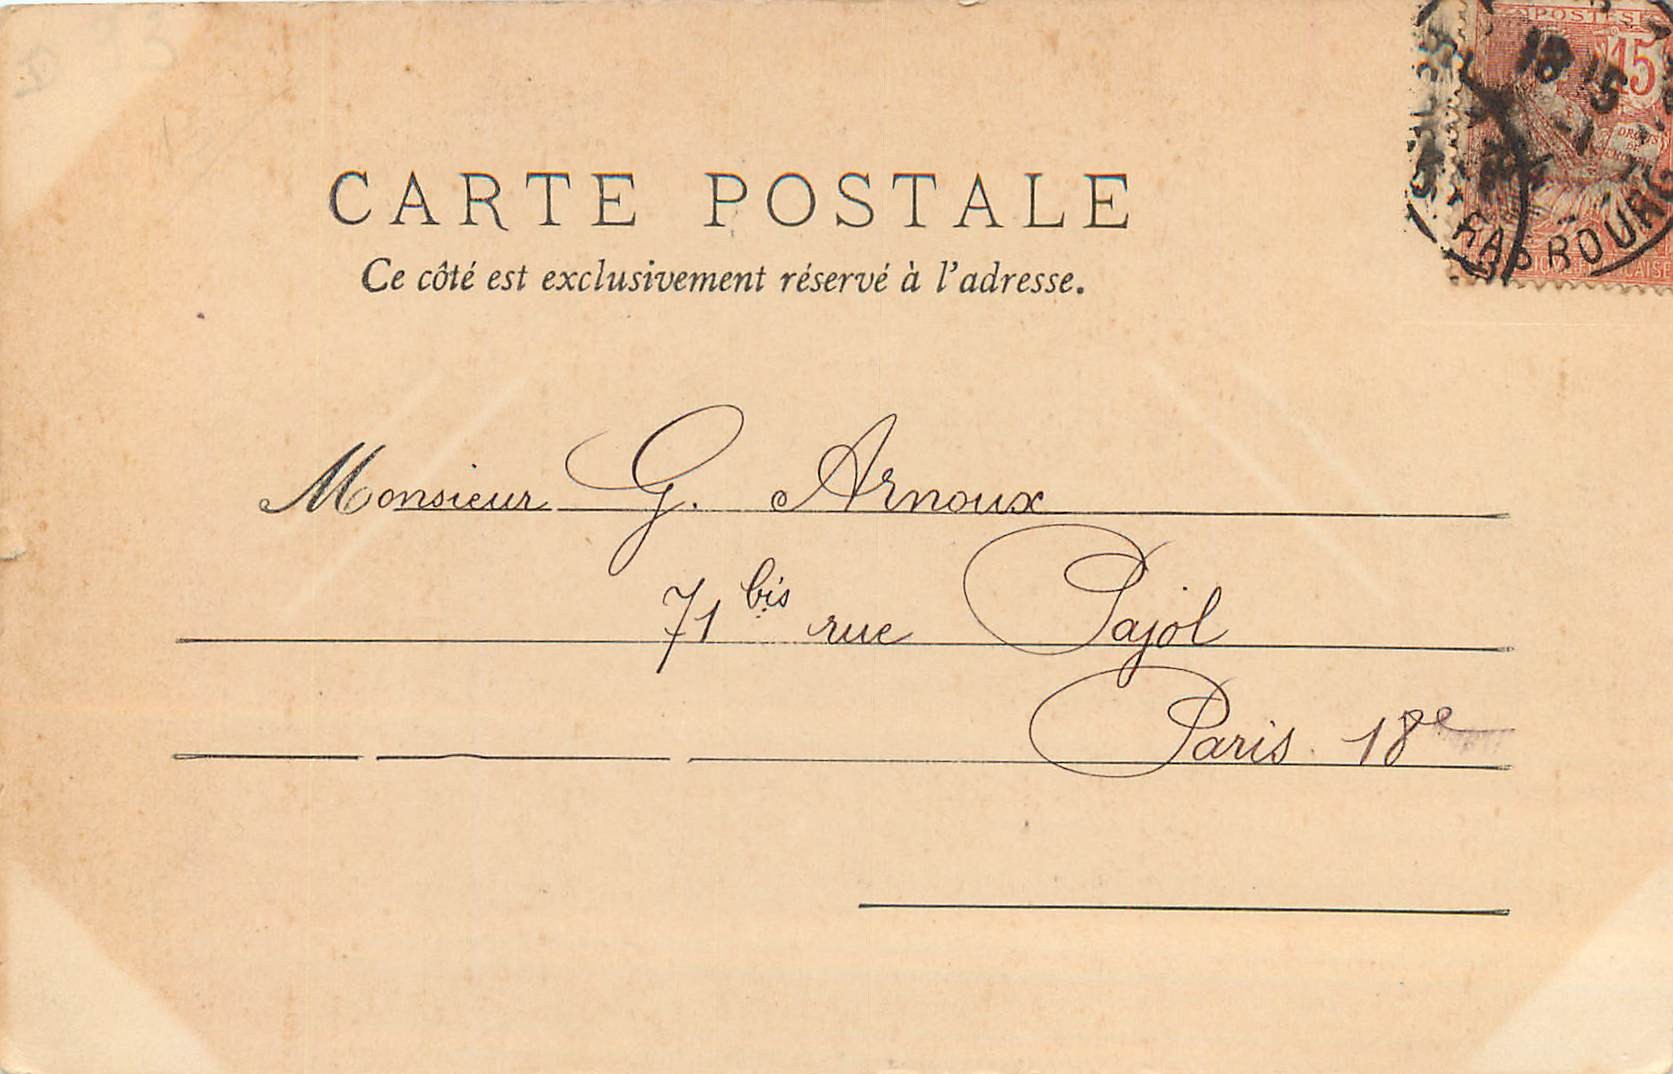 POSTES
15
18 15
DROITS
DE
STRASBOURG
CARTE POSTALE
Ce côté est exclusivement réservé à l'adresse.
Monsieur G. Arnoux
71 bis rue Pajol
Paris 18e